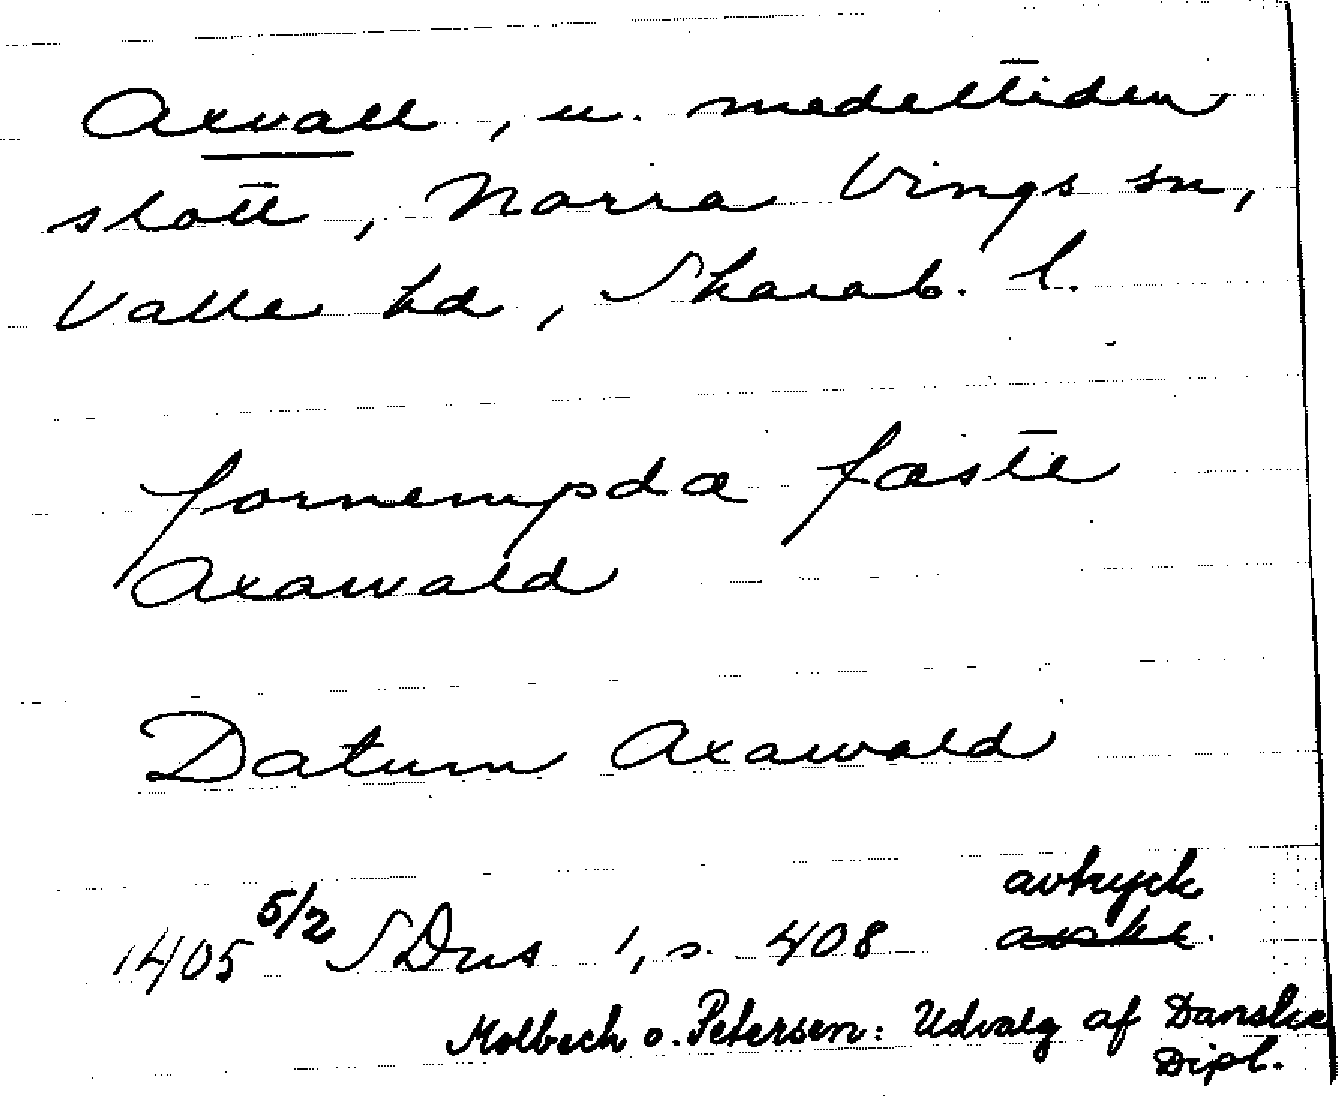 Axvall, u. medeltiden
slott, Norra Vings sn,
Valle hd, Skarab. l.
fornempda fæste
Axawald
Datum Axawald
1405 5/2 SDns 1, s. 408 avtryck
avskr.
Molbech o. Petersen: Udvalg af Danske
Dipl.